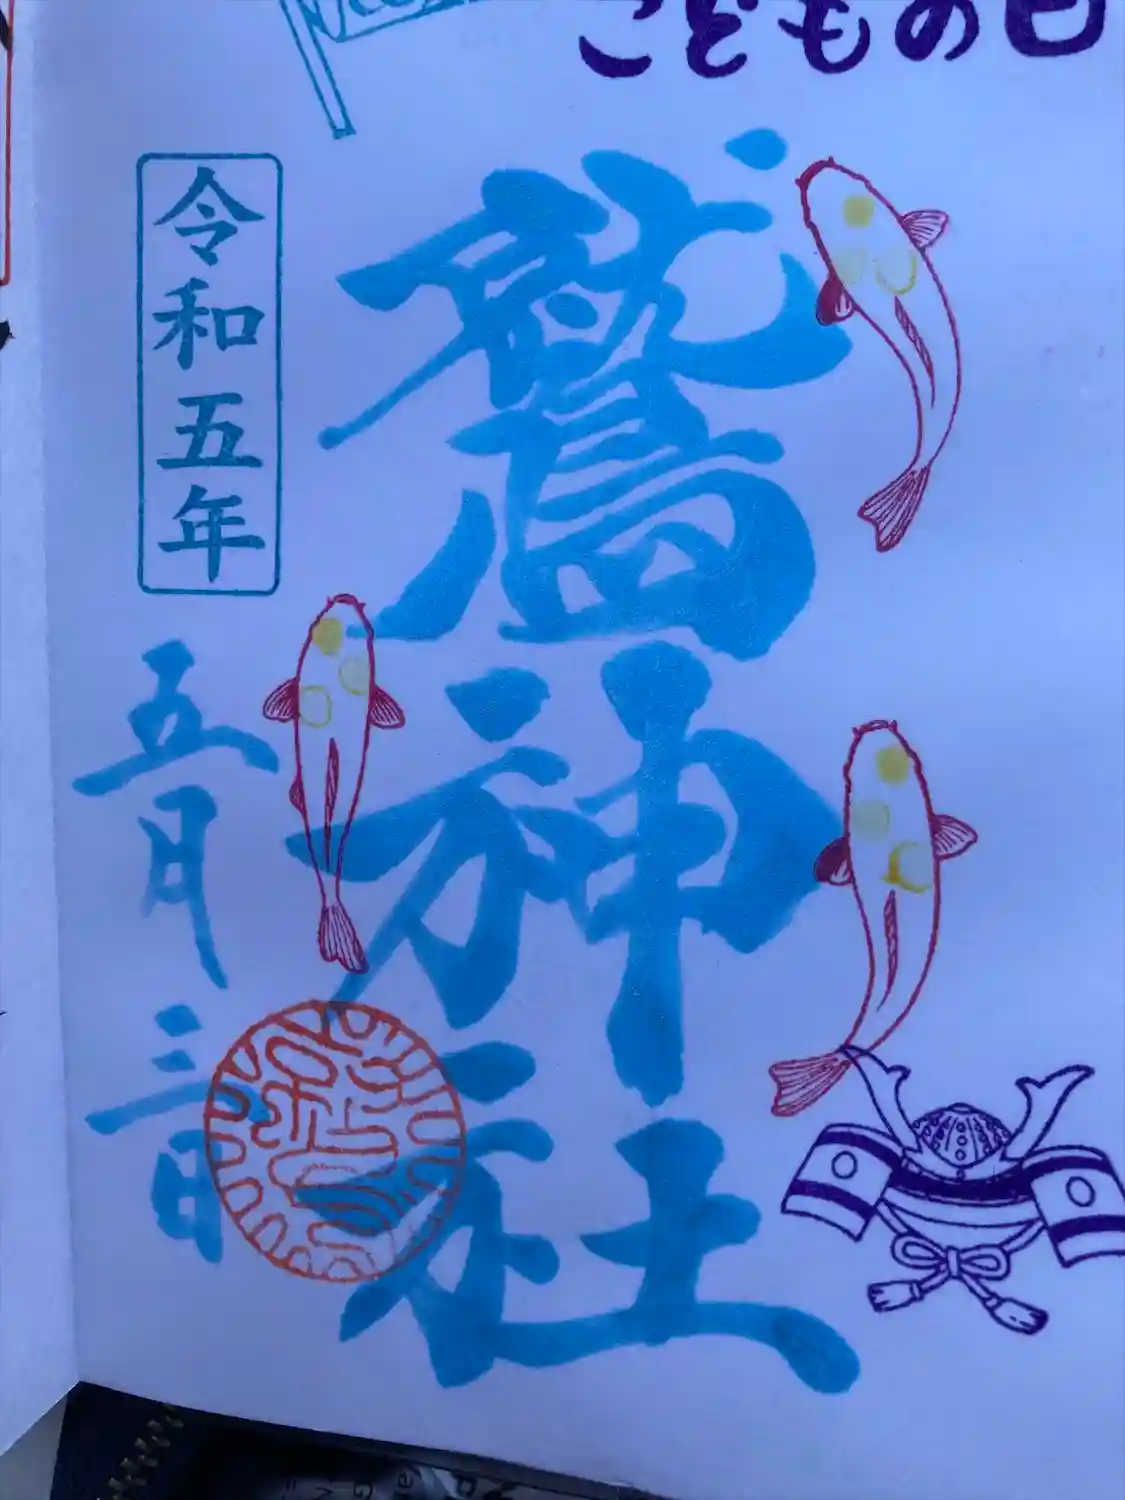 こどもの日
鷲神社
令和五年
五月三日